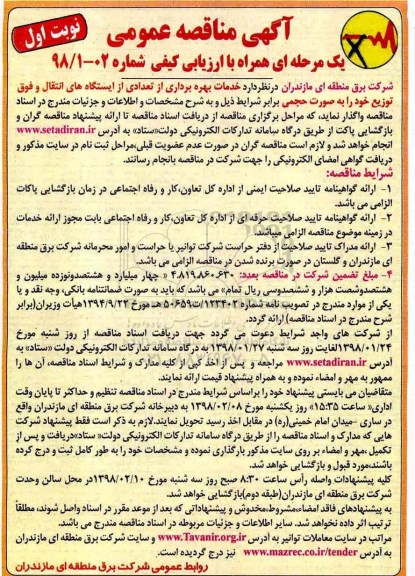 نوبت اول
آگهی مناقصه عمومی
یک مرحله ای همراه با ارزیابی کیفی شماره ۰۲-۹۸/۱
شرکت برق منطقه ای مازندران درنظردارد خدمات بهره برداری از تعدادی از ایستگاه های انتقال و فوق
توزیع خود را به صورت حجمی برابر شرایط ذیل و به شرح مشخصات و اطلاعات و جزئیات مندرج در اسناد
مناقصه واگذار نماید، که مراحل برگزاری مناقصه از دریافت اسناد مناقصه تا ارائه پیشنهاد مناقصه گران و
بازگشایی پاکت از طریق درگاه سامانه تدارکات الکترونیکی دولت«ستاد» به آدرس www.setadiran.ir
انجام خواهد شد و لازم است مناقصه گران در صورت عدم عضویت قبلی،مراحل ثبت نام در سایت مذکور و
دریافت گواهی امضای الکترونیکی را جهت شرکت در مناقصه بانجام رسانند.
شرایط مناقصه:
۱- ارائه گواهینامه تایید صلاحیت ایمنی از اداره کل تعاون،کار و رفاه اجتماعی در زمان بازگشایی پاکات
الزامی می باشد.
۲- ارائه گواهینامه تایید صلاحیت حرفه ای از اداره کل تعاون،کار و رفاه اجتماعی بابت مجوز ارائه خدمات
در زمینه موضوع مناقصه الزامی میباشد.
۳- ارائه مدراک تایید صلاحیت از دفتر حراست شرکت توانیر یا حراست و امور محرمانه شرکت برق منطقه
ای مازندران و گلستان در صورت برنده شدن در مناقصه الزامی می باشد.
۴- مبلغ تضمین شرکت در مناقصه بعدد: ۴.۸۱۹.۸۶۰.۶۳۰ « چهار میلیارد و هشتصدونوزده میلیون و
هشتصدوشصت هزار و ششصدوسی ریال تمام» می باشد که باید به صورت ضمانتنامه بانکی، وجه نقد و یا
یکی از موارد مندرج در تصویب نامه شماره ۱۲۳۴۰۲/ت۵۰۶۵۹ هـ مورخ ۱۳۹۴/۹/۲۲هیأت وزیران(برابر
شرح مندرج در اسناد مناقصه) ارائه گردد.
از شرکت های واجد شرایط دعوت می گردد جهت دریافت اسناد مناقصه از روز شنبه مورخ
۱۳۹۸/۰۱/۲۴لغایت روز سه شنبه ۱۳۹۸/۰۱/۲۷ به درگاه سامانه تدارکات الکترونیکی دولت «ستاد» به
آدرس www.setadiran.ir مراجعه و پس از اخذ کپی از کلیه مدارک و شرایط اسناد مناقصه، آن ها را
ممهور به مهر و امضاء نموده و به همراه پیشنهاد قیمت ارائه نمایند.
متقاضیان می بایستی پیشنهاد خود را براساس شرایط مندرج در اسناد مناقصه تنظیم و حداکثر تا پایان وقت
اداری« ساعت ۱۵:۳۵» روز یکشنبه مورخ ۱۳۹۸/۰۲/۰۸ به دبیرخانه شرکت برق منطقه ای مازندران واقع
در ساری -میدان امام خمینی(ره) در مقابل اخذ رسید تحویل نمایند.لازم به ذکر است فقط پیشنهاد شرکت
هایی که مدارک و اسناد مناقصه را از طریق درگاه سامانه تدارکات الکترونیکی دولت« ستاد»دریافت و پس از
تکمیل ،مهر و امضاء بر روی سایت مذکور بارگذاری نموده و مشخصات خود را به طور کامل ثبت و درج کرده
باشند،مورد قبول و بازگشایی خواهد شد.
کلیه پیشنهادات واصله رأس ساعت ۸:۳۰ صبح روز سه شنبه مورخ ۱۳۹۸/۰۲/۱۰در محل سالن وحدت
شرکت برق منطقه ای مازندران(طبقه دوم)بازگشایی خواهد شد.
به پیشنهادهای فاقد امضاء،مشروط،مخدوش و پیشنهاداتی که بعد از موعد مقرر در اسناد واصل شوند، مطلقاً
ترتیب اثر داده نخواهد شد. سایر اطلاعات و جزئیات مربوطه در اسناد مناقصه مندرج می باشد.
مراتب در سایت معاملات توانیر به آدرس www.Tavanir.org.ir و سایت شرکت برق منطقه ای مازندران
به آدرس www.mazrec.co.ir/tender نیز درج گردیده است.
روابط عمومی شرکت برق منطقه ای مازندران